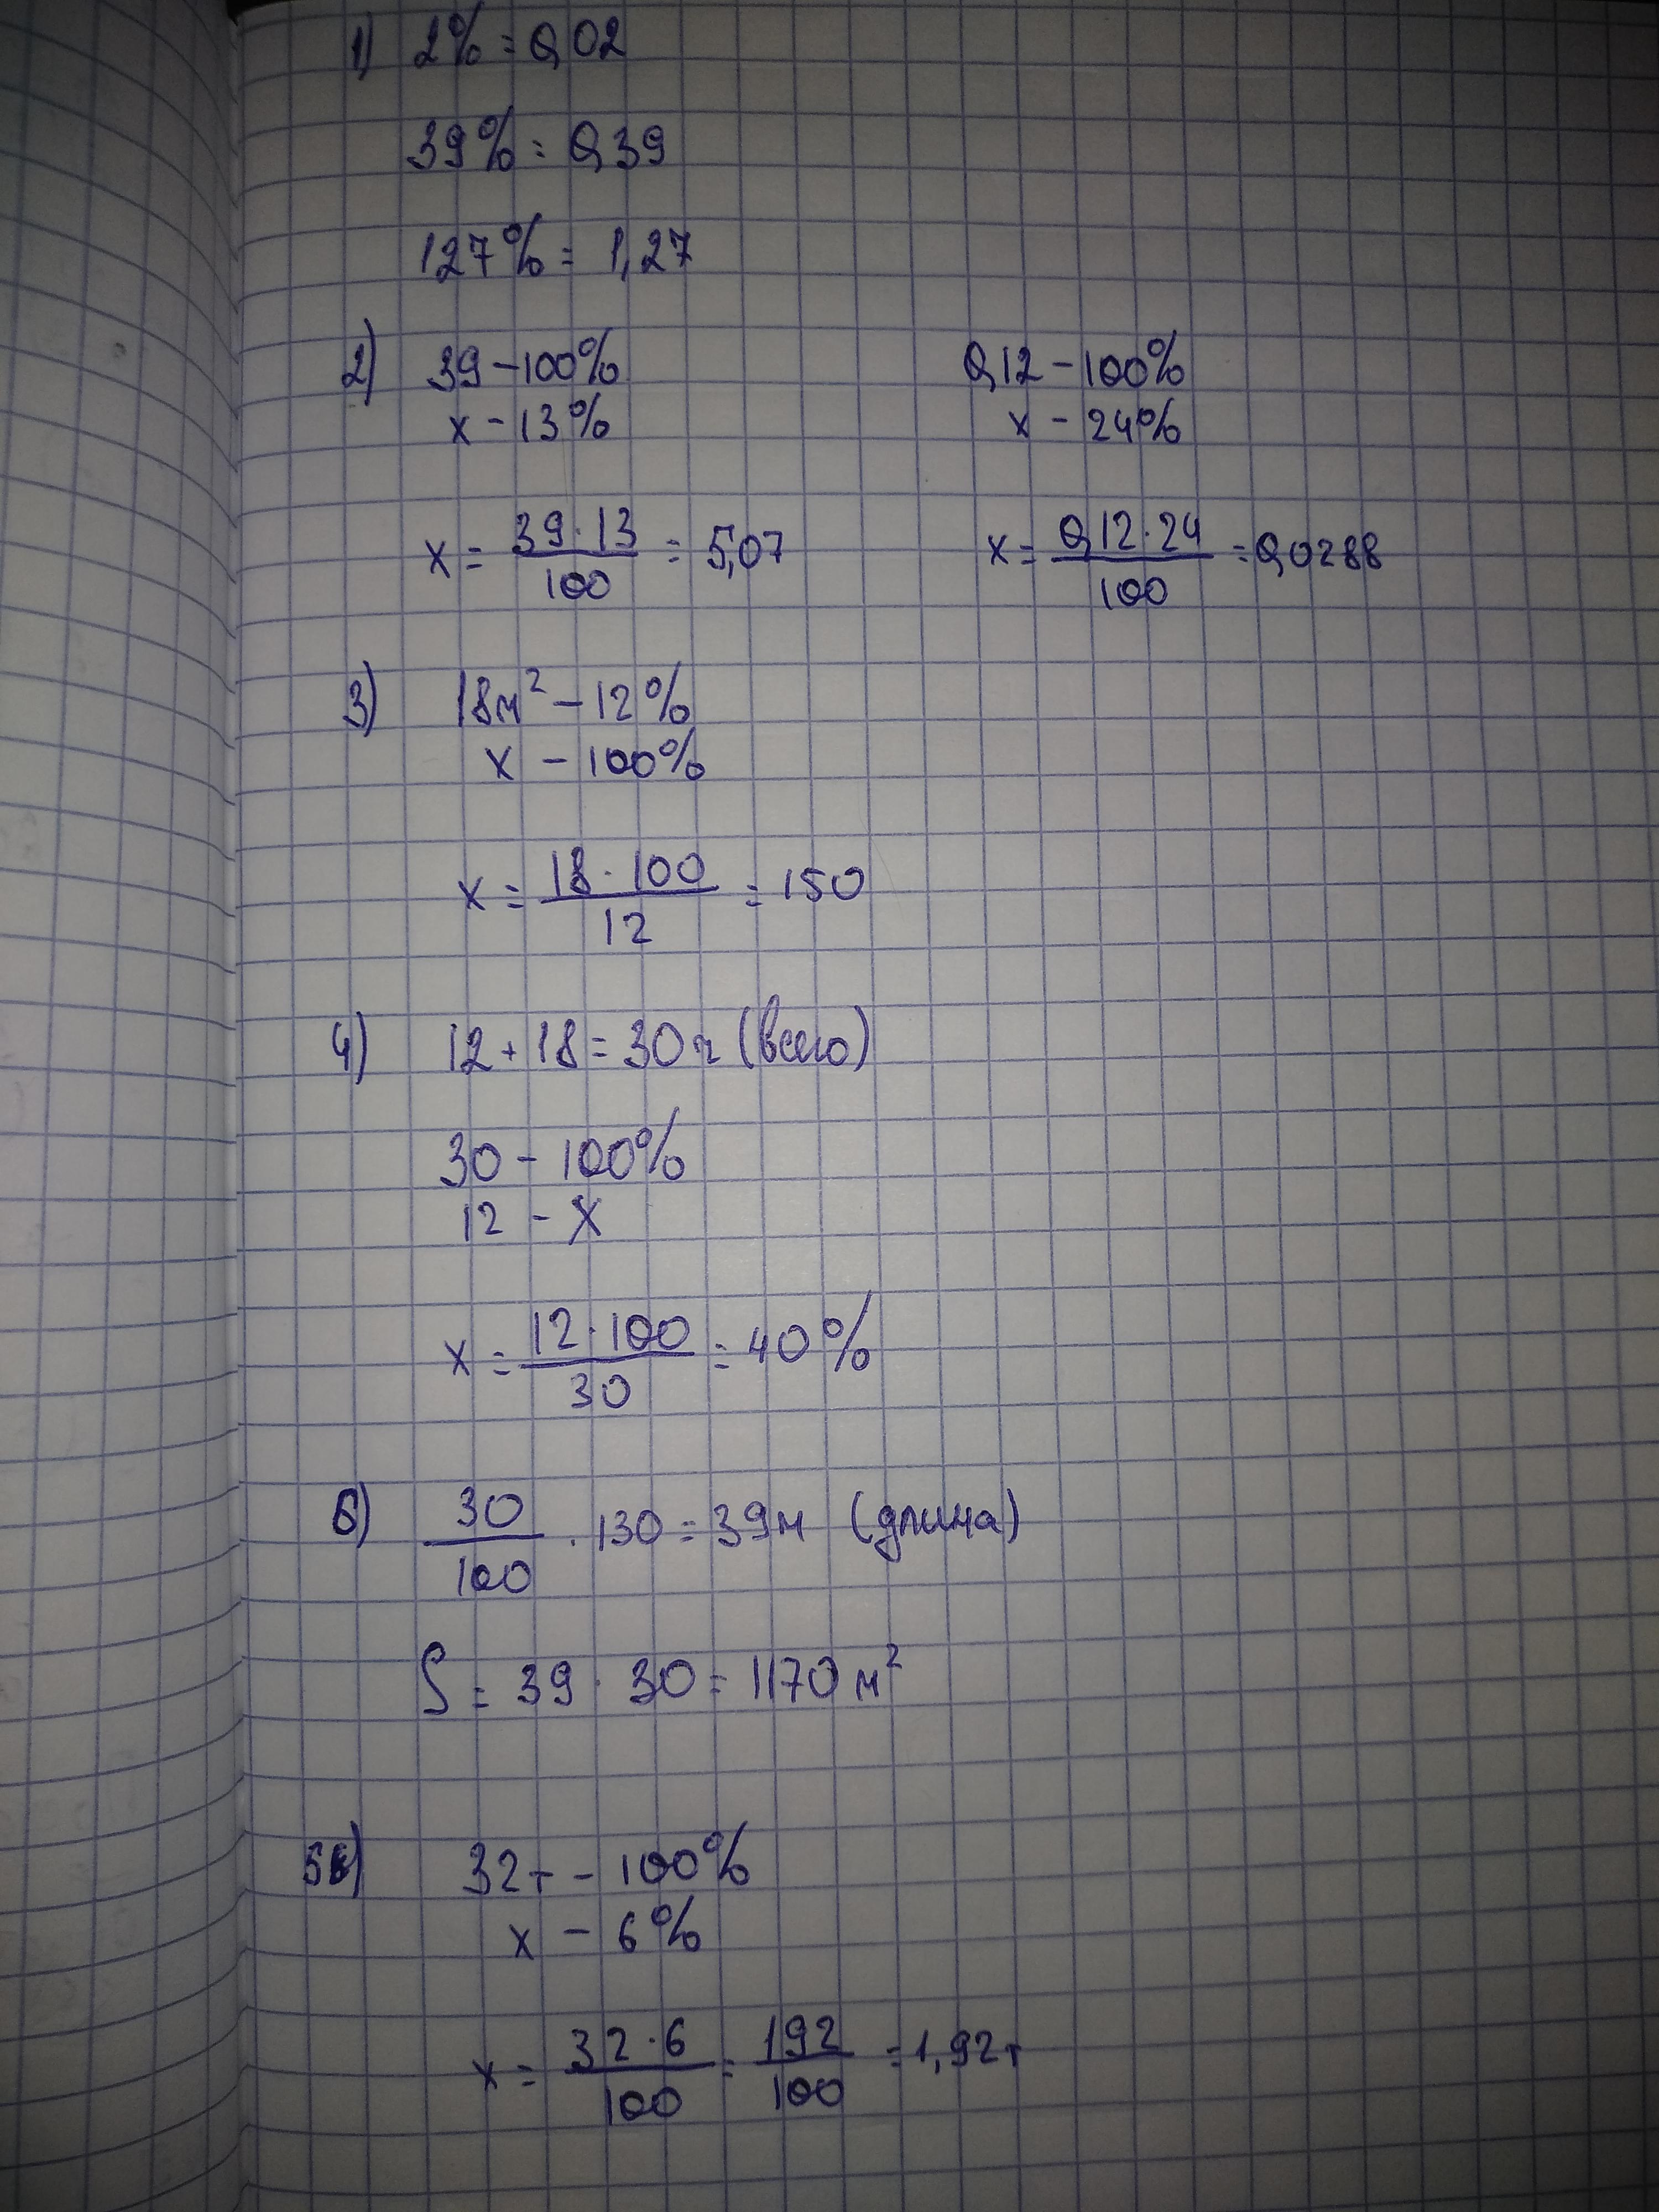 1) 2% = 0,02
39% = 0,39
127% = 1,27
2) 39 – 100%
x – 13%
x = 39 · 13 / 100 = 5,07
0,12 – 100%
x – 24%
x = 0,12 · 24 / 100 = 0,0288
3) 18м² – 12%
x – 100%
x = 18 · 100 / 12 = 150
4) 12 + 18 = 30 г (всего)
30 – 100%
12 – x
x = 12 · 100 / 30 = 40%
6) 30 / 100 · 130 = 39м (длина)
S = 39 · 30 = 1170 м²
5) 32т – 100%
x – 6%
x = 32 · 6 / 100 = 192 / 100 = 1,92т